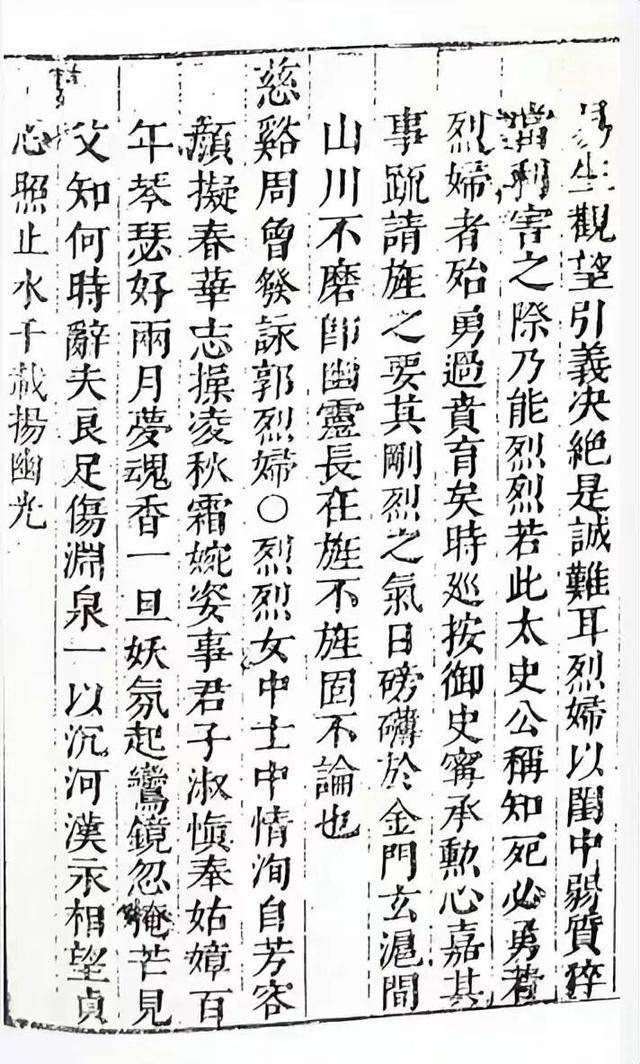 生觀望引義決絕是誠難耳烈婦以閨中弱質猝
當利害之際乃能烈烈若此太史公稱知死必勇若
烈婦者殆勇過賁育矣時廵按御史甯承勲心嘉其
事䟽請旌之要其剛烈之氣日磅礴於金門玄滬間
山川不磨卽幽靈長在旌不旌固不論也
慈谿周曾發詠郭烈婦○烈烈女中士中情洵自芳容
顏擬春華志操凌秋霜婉姿事君子淑慎奉姑嫜百
年琴瑟好兩月夢魂香一旦妖氛起鸞鏡忽掩芒見
父知何時辭夫良足傷淵泉一以沉河漢永相望貞
心照止水千載揚幽光